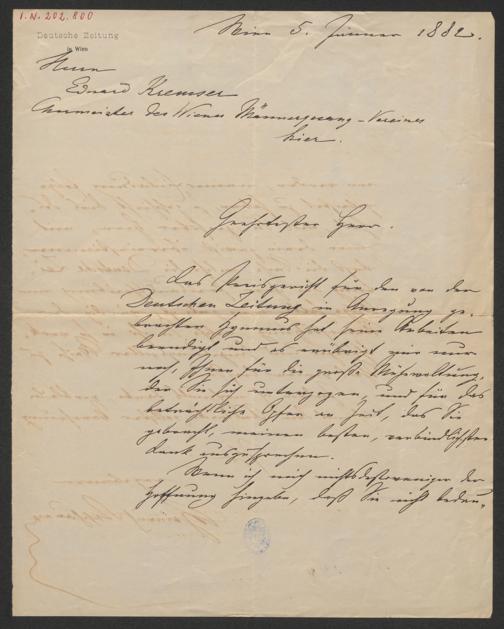 I.N. 202.800
Deutsche Zeitung
in Wien
Wien 5. Januar 1882.
Herrn
Eduard Kremser
Chormeister des Wiener Männergesang-Vereines
hier.
Geehrtester Herr.
Das Preisgericht für den von der
Deutschen Zeitung in Anregung ge-
brachten Hymnus hat seine Arbeiten
beendigt und es erübrigt mir nur
noch, Ihnen für die große Mühewaltung,
der Sie sich unterzogen, und für das
beträchtliche Opfer an Zeit, das Sie
gebracht, meinen besten, verbindlichsten
Dank auszusprechen.
Wenn ich mich nichtsdestoweniger der
Hoffnung hingebe, daß Sie nicht bedau-